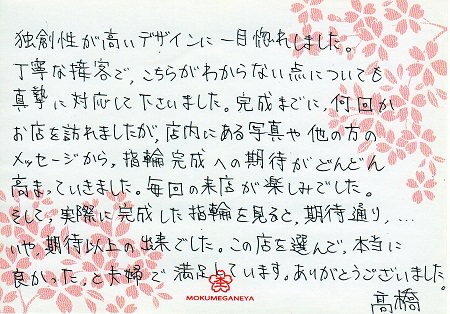 独創性が高いデザインに一目惚れしました。
丁寧な接客で、こちらがわからない点についても
真摯に対応して下さいました。完成までに、何回か
お店を訪れましたが、店内にある写真や他の方の
メッセージから、指輪完成への期待がどんどん
高まっていきました。毎回の来店が楽しみでした。
そして、実際に完成した指輪を見ると、期待通り、…
いや、期待以上の出来でした。この店を選んで、本当に
良かった、と夫婦で満足しています。ありがとうございました。
MOKUMEGANEYA
高橋